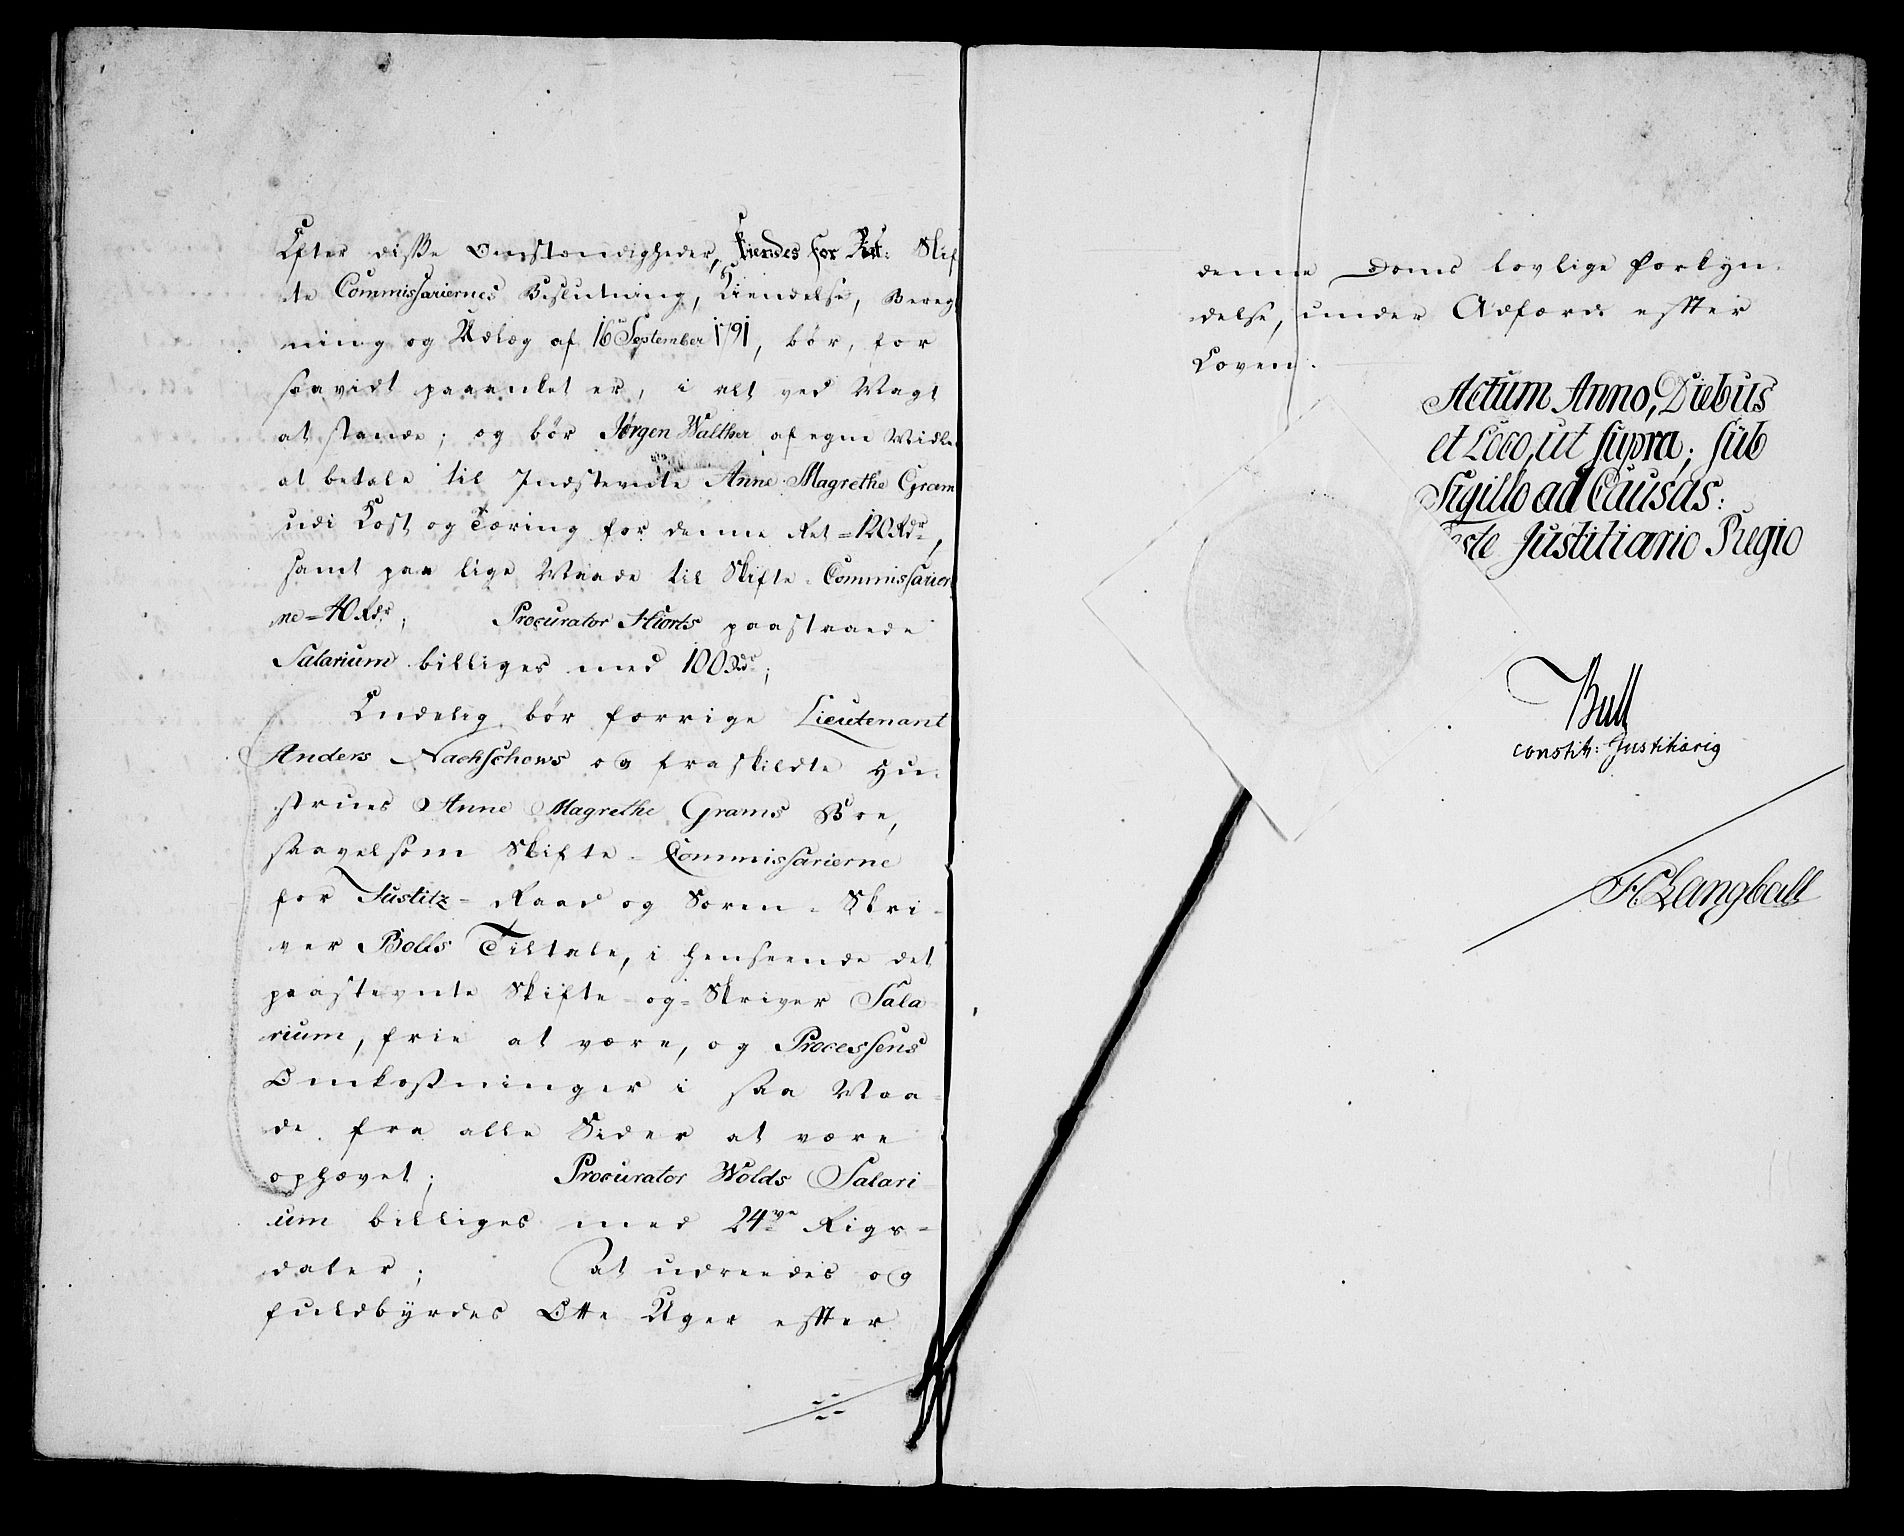 Efter disse Omstændigheder, kiendes for Ret: Skif
te Commissariernes Beslutning, Kiendelse, Bereg
ning og Udlæg af 16 September 1791, bør, for
saavidt paaanket er, i alt ved Magt
at stande; og bør Jørgen Walther af egne Midle
at betale til Indstevnte Anne Magrethe Gram
udi Kost og Tæring for denne Ret = 120 Rdr,
samt paa lige Maade til Skifte-Commissarier
ne = 40 Rdr; Procurator Hiorts paastaaede
Salarium billiges med 100 Rdr;
Endelig bør forrige Lieutenant
Anders Nachschows og fraskildte Hu-
strues Anne Magrethe Grams Boe,
saavelsom Skifte-Commissarierne
for Justitz-Raad og Soren-Skri-
ver Bolls Tiltale, i Henseende det
paastevnte Skifte-og-Skriver Sala
rium, frie at være, og Processens
Omkostninger i saa Maa-
de fra alle Sider at være
ophævet; Procurator Wolds Salari
um billiges med 24ve Rigs-
daler; At udreedes og
fuldbyrdes Otte Uger efter
denne Doms lovlige Forkyn-
delse, under Adfærd efter
Loven.
Actum Anno, Diebus
et Loco, ut supra; sub
Sigillo ad Causas:
este Justitiario Regio
Bull
constit: Justitiarig
Langball